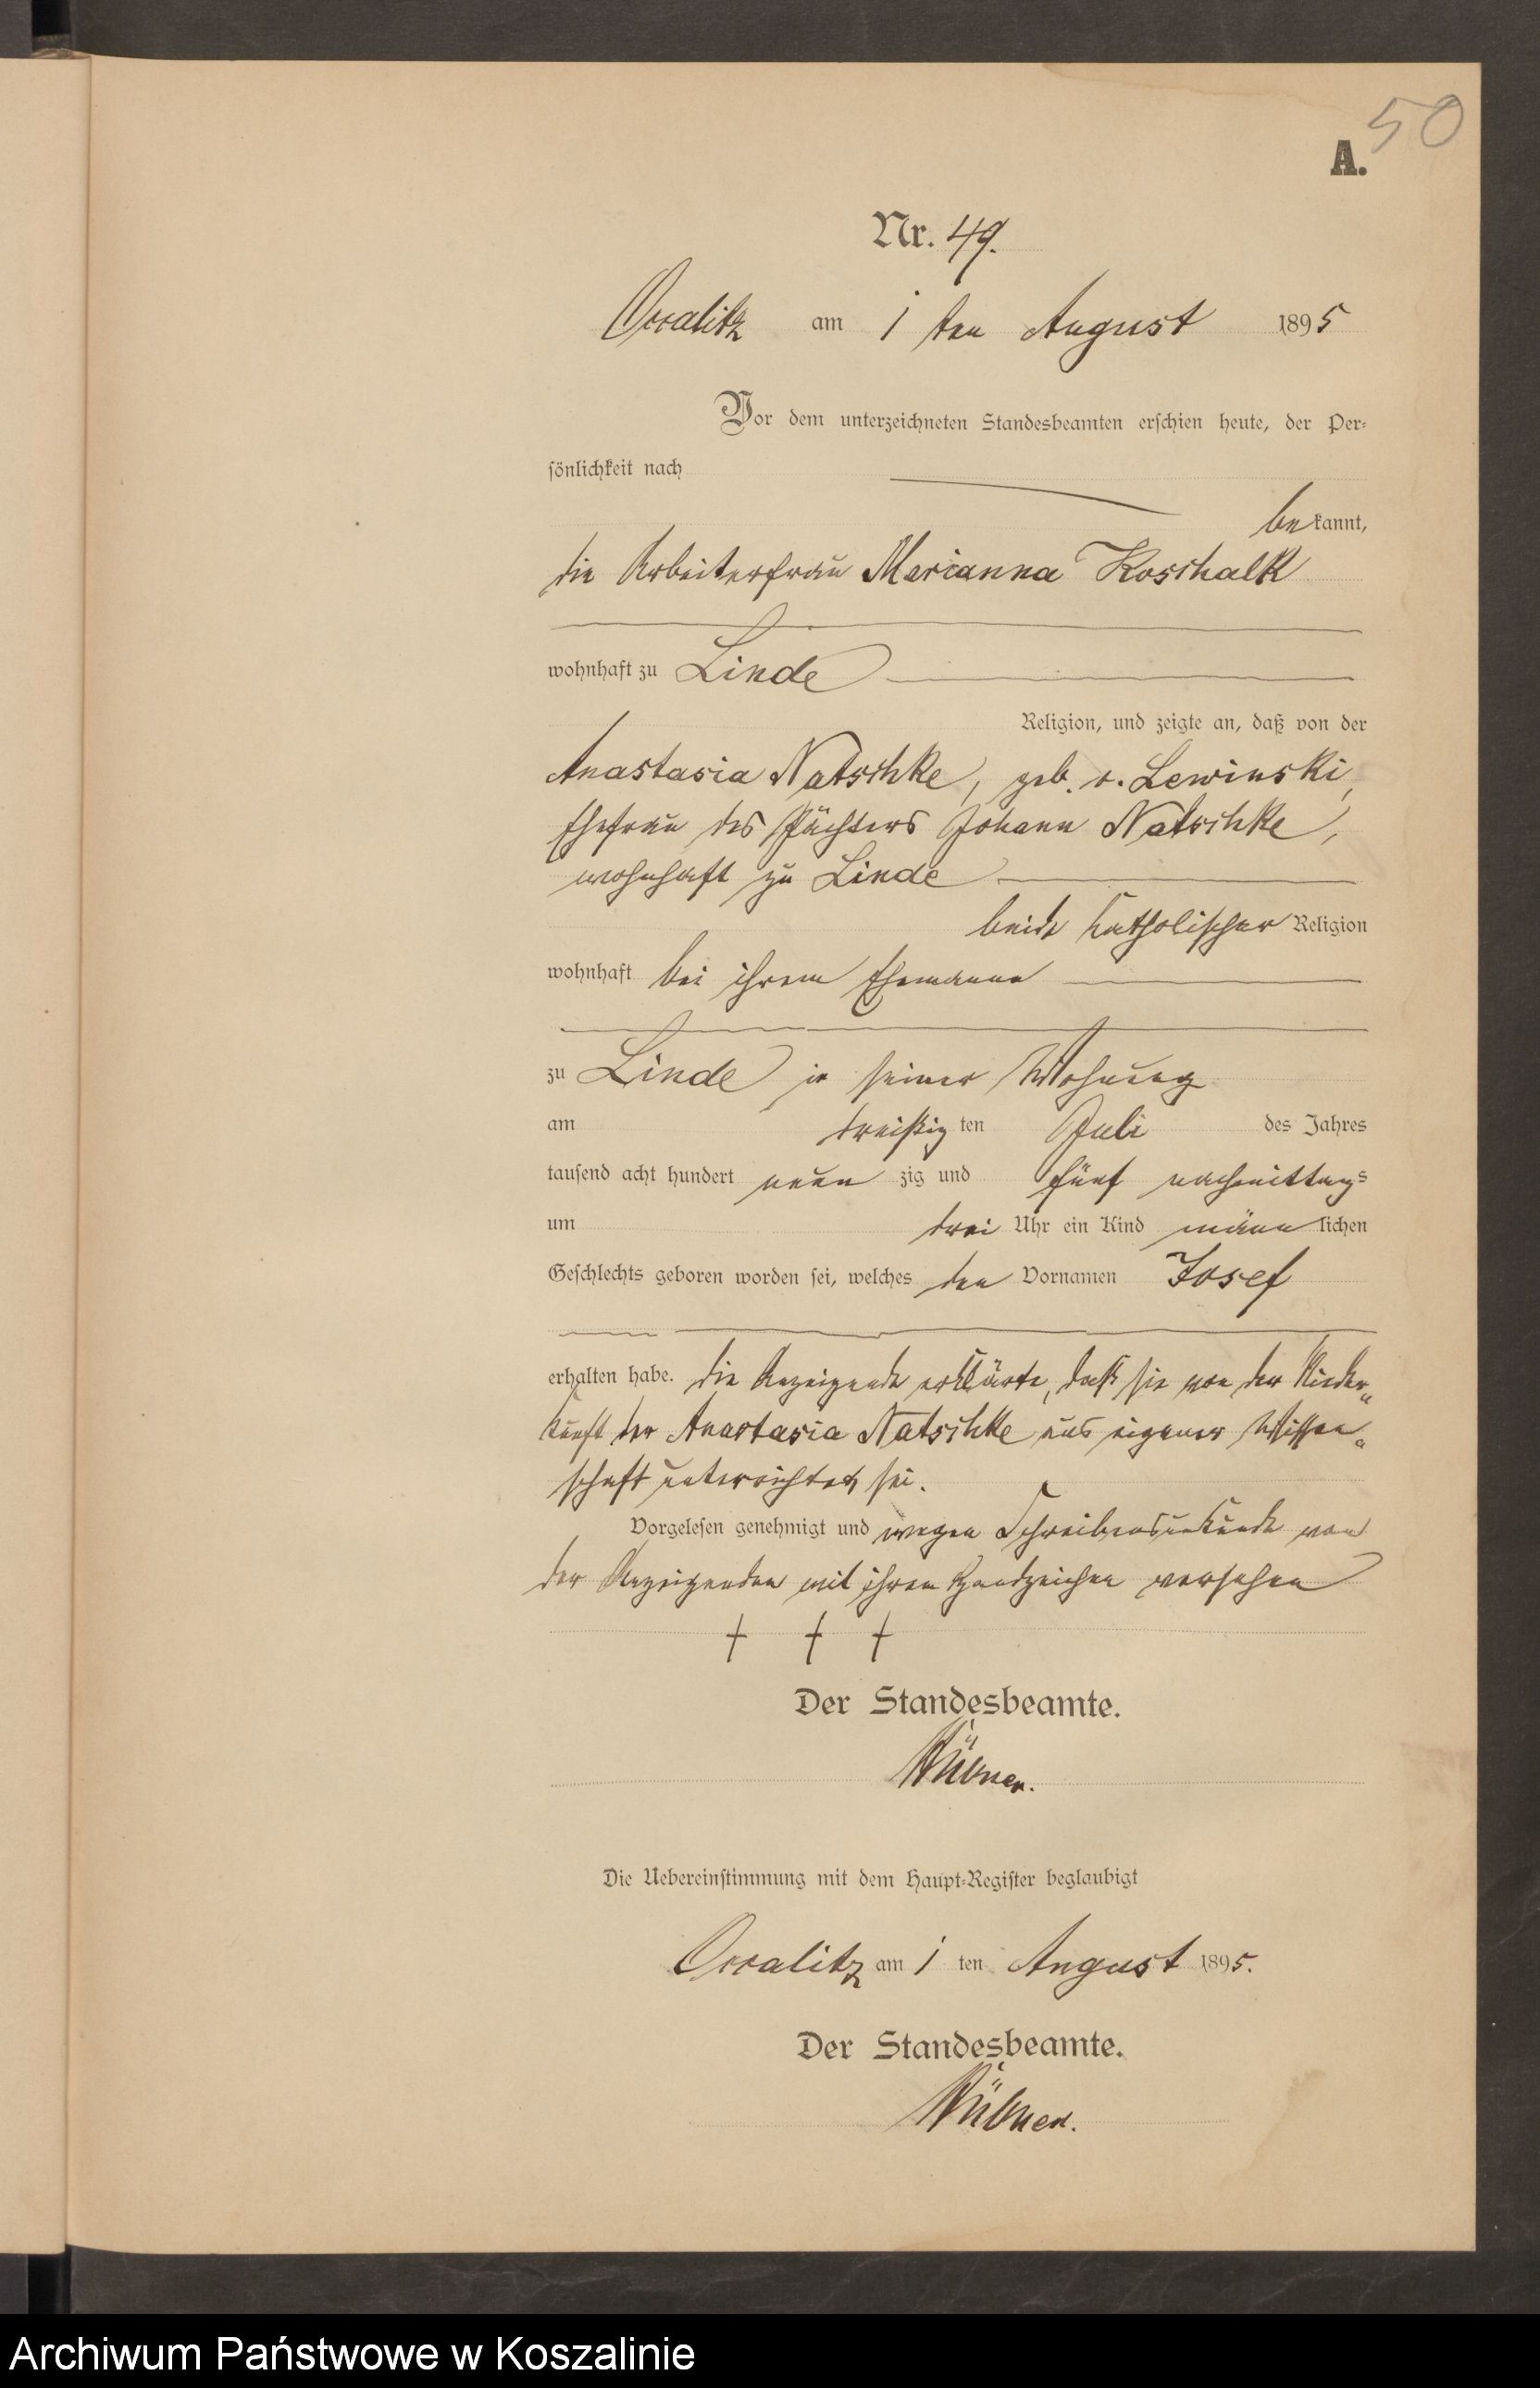 50
A.
Nr. 49.
Occalitz am 1 ten August 1895
Vor dem unterzeichneten Standesbeamten erschien heute, der Per-
sönlichkeit nach
bekannt,
die Arbeiterfrau Marianna Koschalk
wohnhaft zu Linde
Religion, und zeigte an, daß von der
Anastasia Natschke, geb. v. Lewinski,
Ehefrau des Pächters Johann Natschke,
wohnhaft zu Linde
beide katholischer Religion
wohnhaft bei ihrem Ehemanne
zu Linde in seiner Wohnung
am dreißig ten Juli des Jahres
tausend acht hundert neun zig und fünf nachmittags
um drei Uhr ein Kind männlichen
Geschlechts geboren worden sei, welches den Vornamen Josef
erhalten habe. Die Anzeigende erklärte, daß sie von der Nieder„
kunft der Anastasia Natschke aus eigener Wissen„
schaft unterrichtet sei.
Vorgelesen genehmigt und wegen Schreibensunkunde von
der Anzeigenden mit ihrem Handzeichen versehen
† † †
Der Standesbeamte.
Die Uebereinstimmung mit dem Haupt-Register beglaubigt
Occalitz am 1 ten August 1895.
Der Standesbeamte.
Archiwum Państwowe w Koszalinie